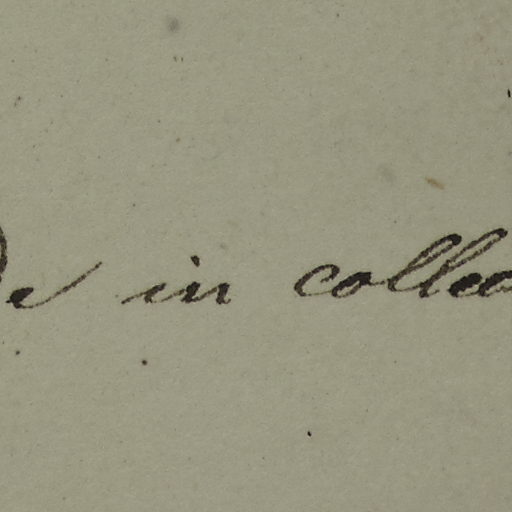 de in collec